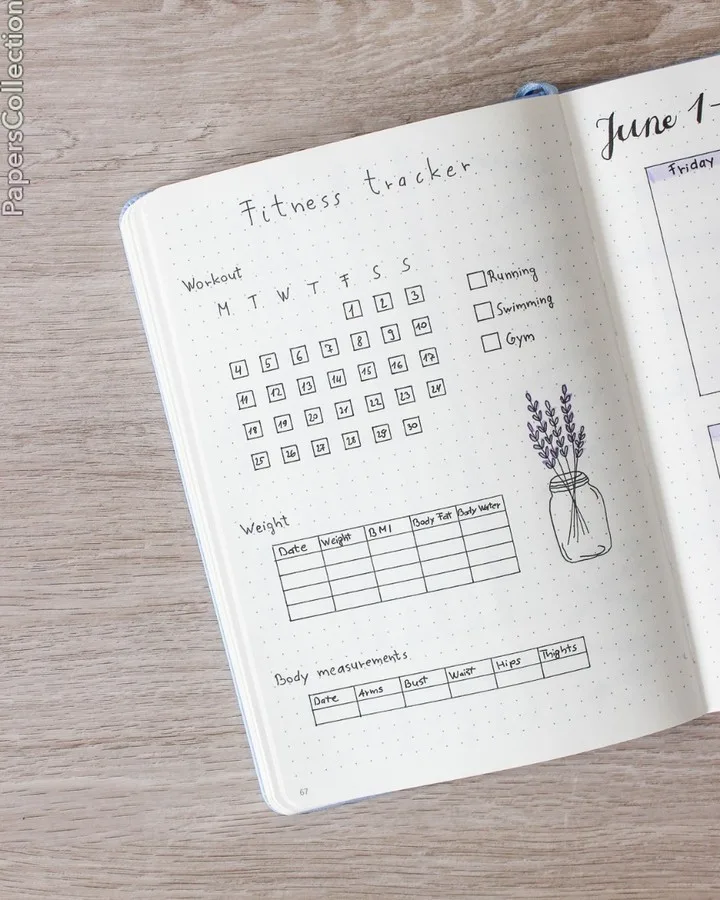 PapersCollection
Fitness tracker
Workout
M T W T F S S
1 2 3
4 5 6 7 8 9 10
11 12 13 14 15 16 17
18 19 20 21 22 23 24
25 26 27 28 29 30
Running
Swimming
Gym
Weight
Date Weight BMI Body Fat Body Water
Body measurements
Date Arms Bust Waist Hips Thights
67
June 1-
Friday